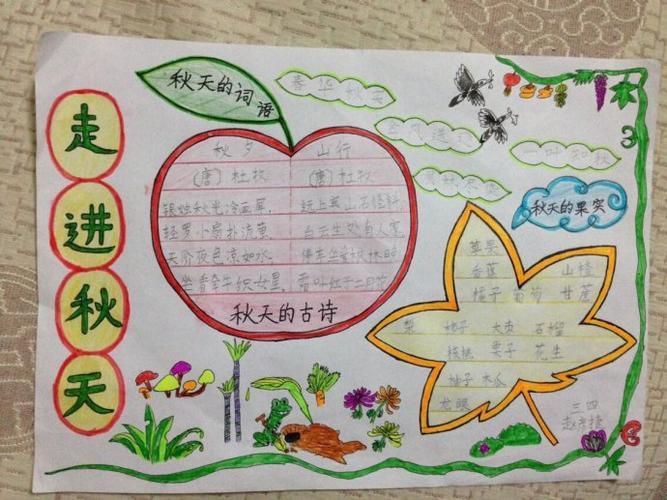 走进秋天
秋天的词语
春华秋实
金风送爽
一叶知秋
层林尽染
秋夕
(唐)杜牧
银烛秋光冷画屏,
轻罗小扇扑流萤.
天阶夜色凉如水,
坐看牵牛织女星.
山行
(唐)杜牧
远上寒山石径斜,
白云生处有人家.
停车坐爱枫林晚,
霜叶红于二月花
秋天的古诗
秋天的果实
苹果
香蕉 山楂
橘子 葡萄 甘蔗
梨 柿子 大枣 石榴
核桃 栗子 花生
柚子 木瓜
龙眼
三四